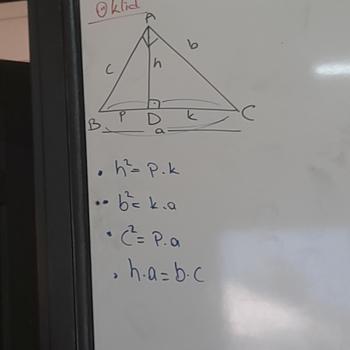 Öklid
A
c h b
B p D k C
a
h²= p.k
b²= k.a
c²= p.a
h.a=b.c